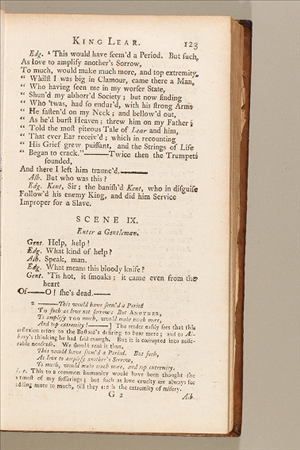 KING LEAR. 123
Edg. ² This would have seem'd a Period. But such,
As love to amplify another's Sorrow,
To much, would make much more, and top extremity.
" Whilst I was big in Clamour, came there a Man,
" Who having seen me in my worser State,
" Shun'd my abhorr'd Society; but now finding
" Who 'twas, had so endur'd, with his strong Arms
" He fasten'd on my Neck; and bellow'd out,
" As he'd burst Heaven; threw him on my Father;
" Told the most piteous Tale of Lear and him,
" That ever Ear receiv'd; which in recounting
" His Grief grew puissant, and the Strings of Life
" Began to crack."——Twice then the Trumpets
sounded,
And there I left him trance'd.——
Alb. But who was this?
Edg. Kent, Sir; the banish'd Kent, who in disguise
Follow'd his enemy King, and did him Service
Improper for a Slave.
SCENE IX.
Enter a Gentleman.
Gent. Help, help!
Edg. What kind of help?
Alb. Speak, man.
Edg. What means this bloody knife?
Gent. 'Tis hot, it smoaks; it came even from the
heart
Of——O! she's dead.——
2 ——This would have seem'd a Period
To such as love not sorrow: But ANOTHER,
To amplify TOO much, would make much more,
And top extremity!——] The reader easily sees that this
reflection refers to the Bastard's desiring to hear more; and to Al-
bany's thinking he had said enough. But it is corrupted into mise-
rable nonsense. We should read it thus,
This would have seem'd a Period. But such,
As love to amplify another's Sorrow,
To much, would make much more, and top extremity.
i. e. This to a common humanity would have been thought the
utmost of my sufferings; but such as love cruelty are always for
adding more to much, till they reach the extremity of misery.
G 2 Alb.